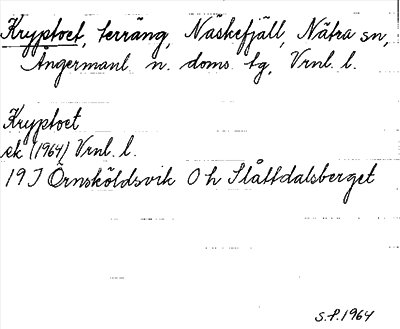 Kryptoet, terräng, Näskefjäll, Nätra sn,
Ångermanl. n. doms. tg, Vrnl. l.
Kryptoet
ek (1964) Vrnl. l.
19J Örnsköldsvik 0 h Slåttdalsberget
S.P. 1964